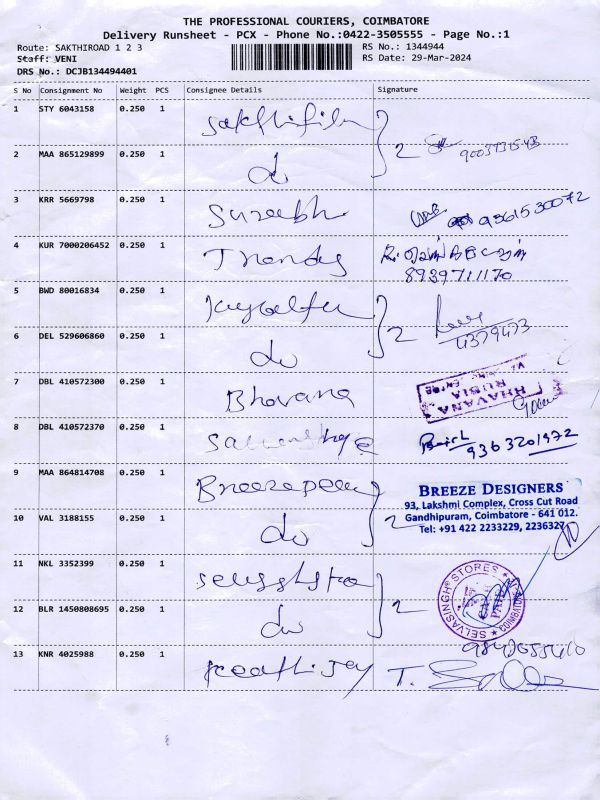 THE PROFESSIONAL COURIERS, COIMBATORE
Delivery Runsheet - PCX - Phone No.:0422-3505555 - Page No.:1
Route: SAKTHIROAD 1 2 3
RS No.: 1344944
Staff: VENI
RS Date: 29-Mar-2024
DRS No.: DCJB134494401
S No Consignment No Weight PCS Consignee Details Signature
1 STY 6043158 0.250 1
2 MAA 865129899 0.250 1 do 2
3 KRR 5669798 0.250 1 Sureebh 9361530072
4 KUR 7000206452 0.250 1 Trendy
8939711170
5 BWD 80016834 0.250 1
6 DEL 529606860 0.250 1 do 2 4379473
7 DBL 410572300 0.250 1 Bhavana BHAVANA RUBIA
8 DBL 410572370 0.250 1 9363201972
9 MAA 864814708 0.250 1
BREEZE DESIGNERS
93, Lakshmi Complex, Cross Cut Road
10 VAL 3188155 0.250 1 do 2 Gandhipuram, Coimbatore - 641 012.
Tel: +91 422 2233229, 2236327
11 NKL 3352399 0.250 1
12 BLR 1450808695 0.250 1 do 2 SELVASINGH STORES COIMBATORE
13 KNR 4025988 0.250 1 T.